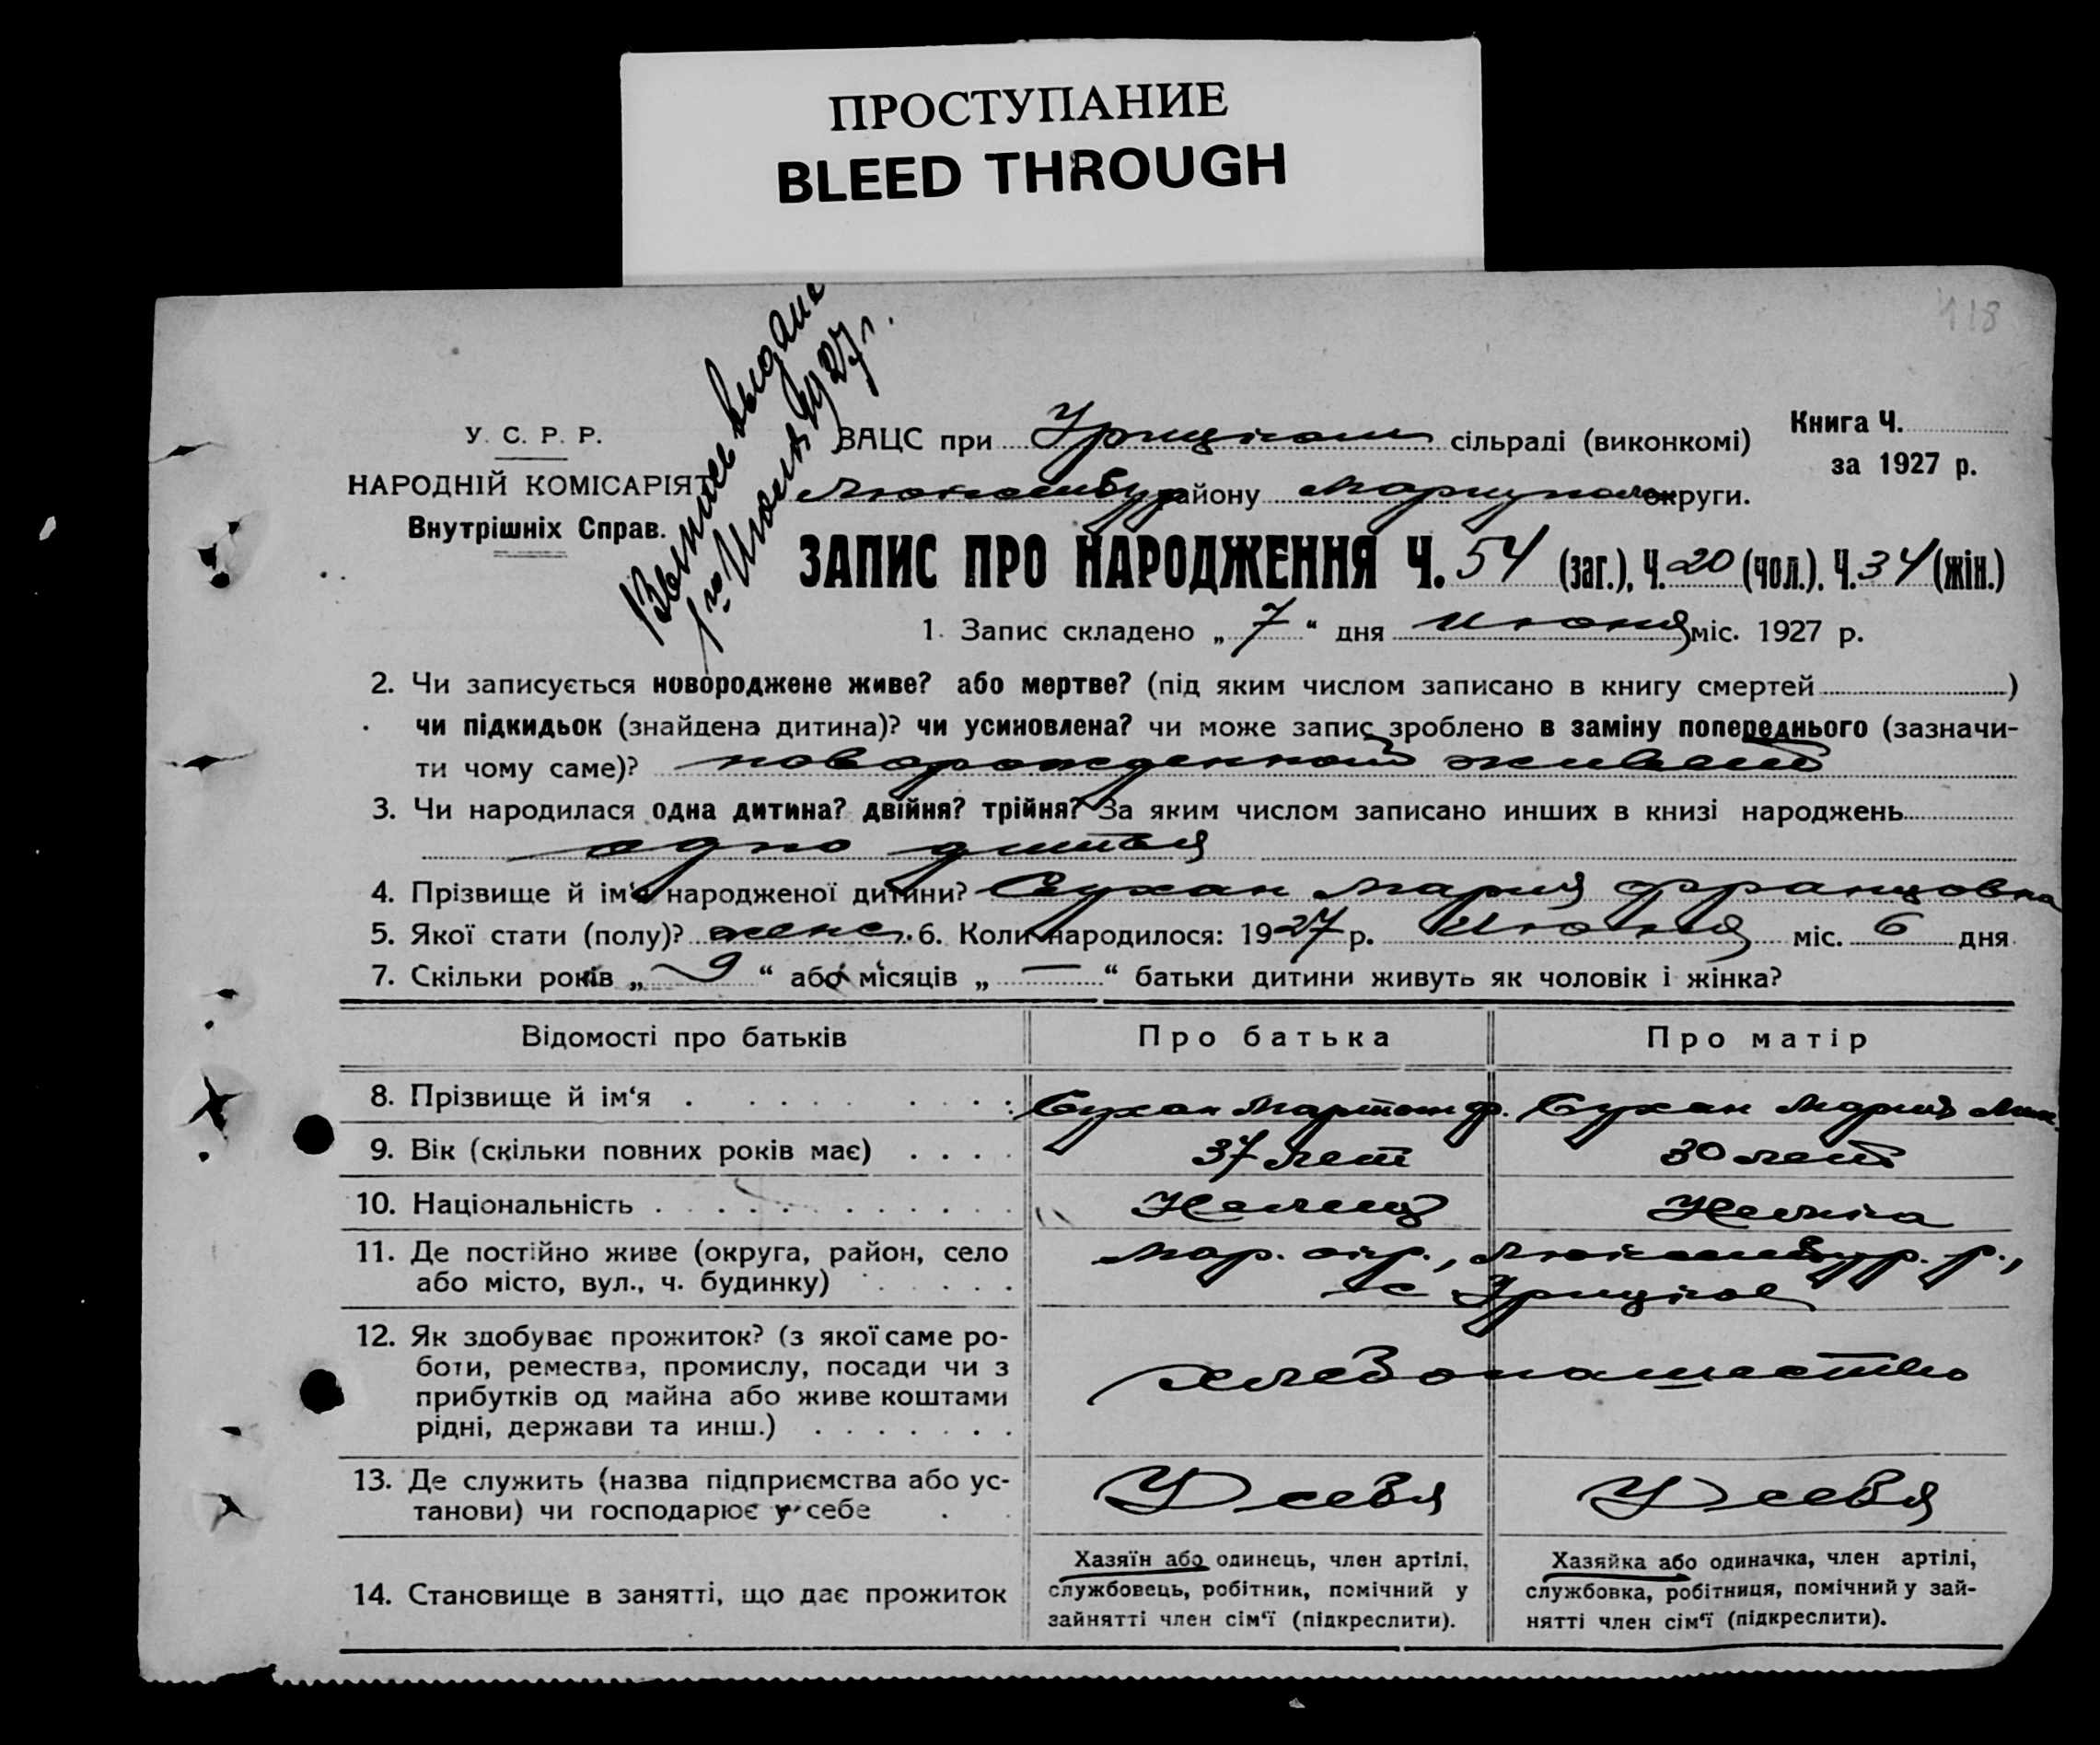 ПРОСТУПАНИЕ
BLEED THROUGH
118
Выпись выдана
1го Июня 1927 г.
У. С. Р. Р.
НАРОДНІЙ КОМІСАРІЯТ
Внутрішніх Справ.
ВАЦС при Урицком сільраді (виконкомі)
Люксембур району Мариупол округи.
Книга Ч.
за 1927 р.
ЗАПИС ПРО НАРОДЖЕННЯ Ч. 54 (заг.), Ч. 20 (чол.). Ч. 34 (жін.)
1. Запис складено „ 7 “ дня Июня міс. 1927 р.
2. Чи записується новороджене живе? або мертве? (під яким числом записано в книгу смертей )
чи підкидьок (знайдена дитина)? чи усиновлена? чи може запис зроблено в заміну попереднього (зазначи-
ти чому саме)? новорожденный живой
3. Чи народилася одна дитина? двійня? трійня? За яким числом записано инших в книзі народжень
одно дитя
4. Прізвище й ім‘я народженої дитини? Сухан Мария Францовна
5. Якої стати (полу)? женс. 6. Коли народилося: 1927 р. Июня міс. 6 дня
7. Скільки років „ 9 “ або місяців „ — “ батьки дитини живуть як чоловік і жінка?
Відомості про батьків Про батька Про матір
8. Прізвище й ім‘я Сухан Мартын Ф. Сухан Мария
9. Вік (скільки повних років має) 37 лет 30 лет
10. Національність Немец Немка
11. Де постійно живе (округа, район, село Мар. окр., Люксембур. р.,
або місто, вул., ч. будинку) с Урицкое
12. Як здобуває прожиток? (з якої саме ро-
боти, ремества, промислу, посади чи з хлебопашество
прибутків од майна або живе коштами
рідні, держави та инш.)
13. Де служить (назва підприємства або ус- У себя У себя
танови) чи господарює у себе
14. Становище в занятті, що дає прожиток
Хазяїн або одинець, член артілі,
службовець, робітник, помічний у
зайнятті член сім‘ї (підкреслити).
Хазяйка або одиначка, член артілі,
службовка, робітниця, помічний у зай-
нятті член сім‘ї (підкреслити).